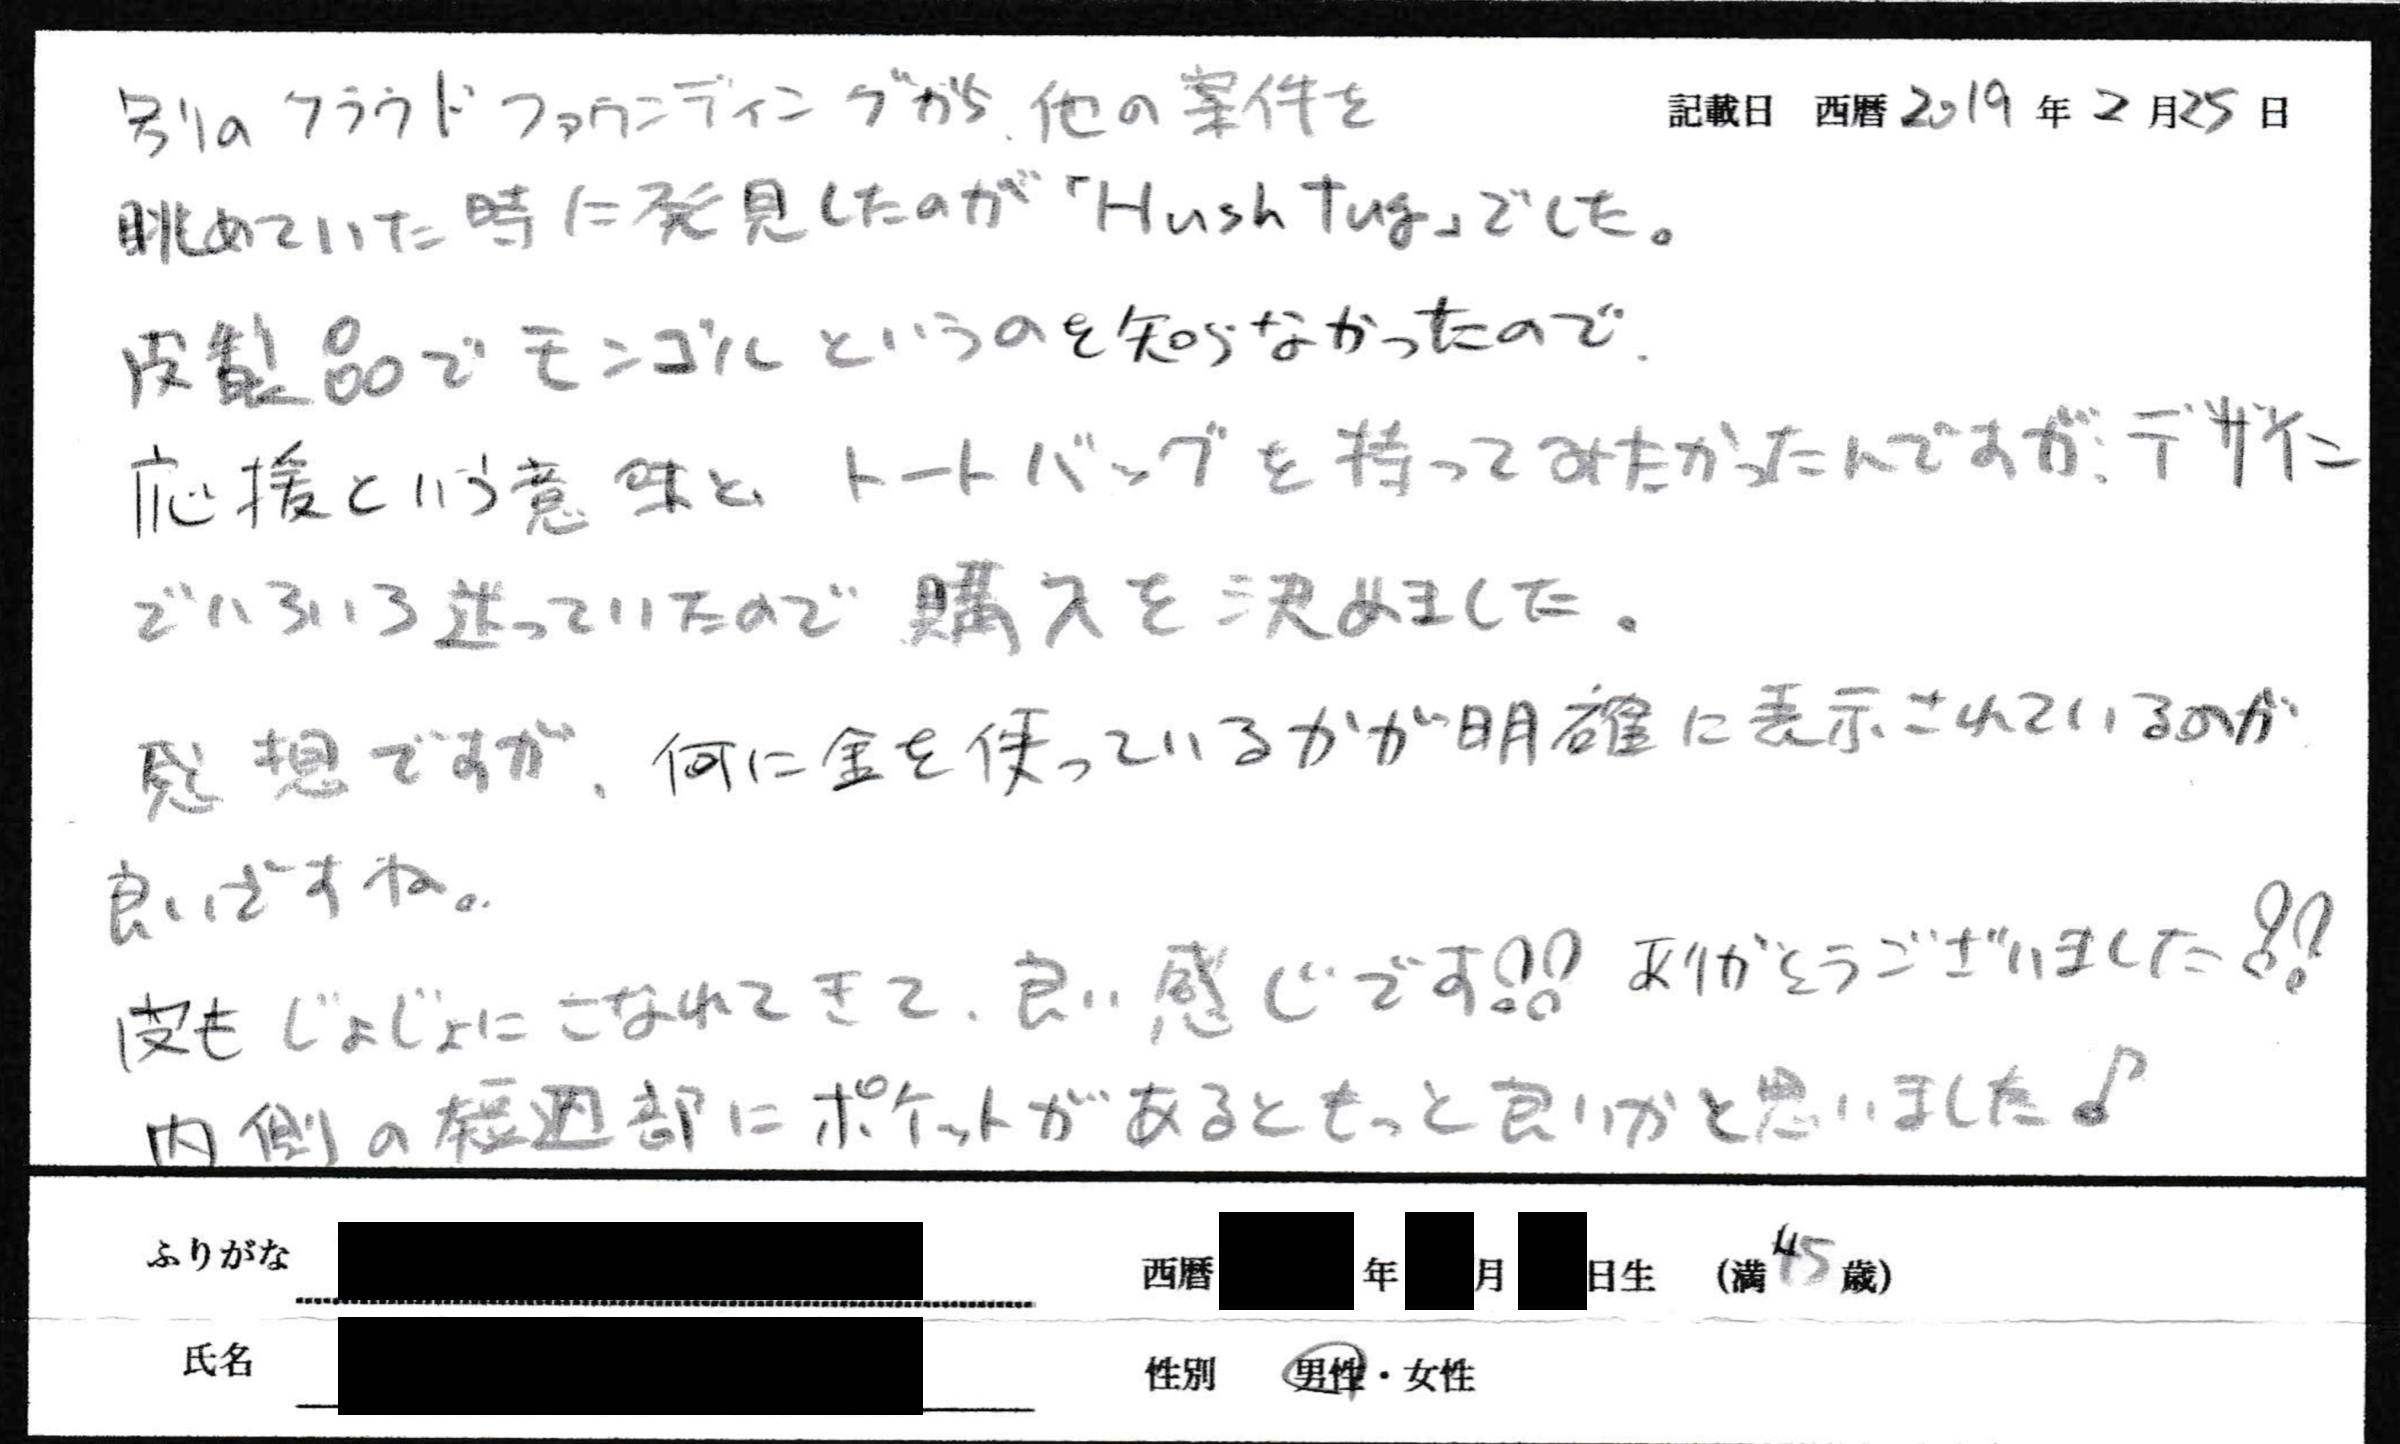 記載日 西暦 2019 年 2 月 25 日
別のクラウドファウンディングから、他の案件を
眺めていた時に発見したのが「Hush tug」でした。
皮製品でモンゴルというのを知らなかったので、
応援という意味と、トートバッグを持ってみたかったんですが、デザイン
でいろいろ迷っていたので購入を決めました。
感想ですが、何に金を使っているかが明確に表示されているのが
良いですね。
皮もじょじょにこなれてきて、良い感じです!! ありがとうございました!!
内側の短辺部にポケットがあるともっと良いかと思いました♪
ふりがな 西暦 年 月 日生 (満 45 歳)
氏名 性別 男性・女性